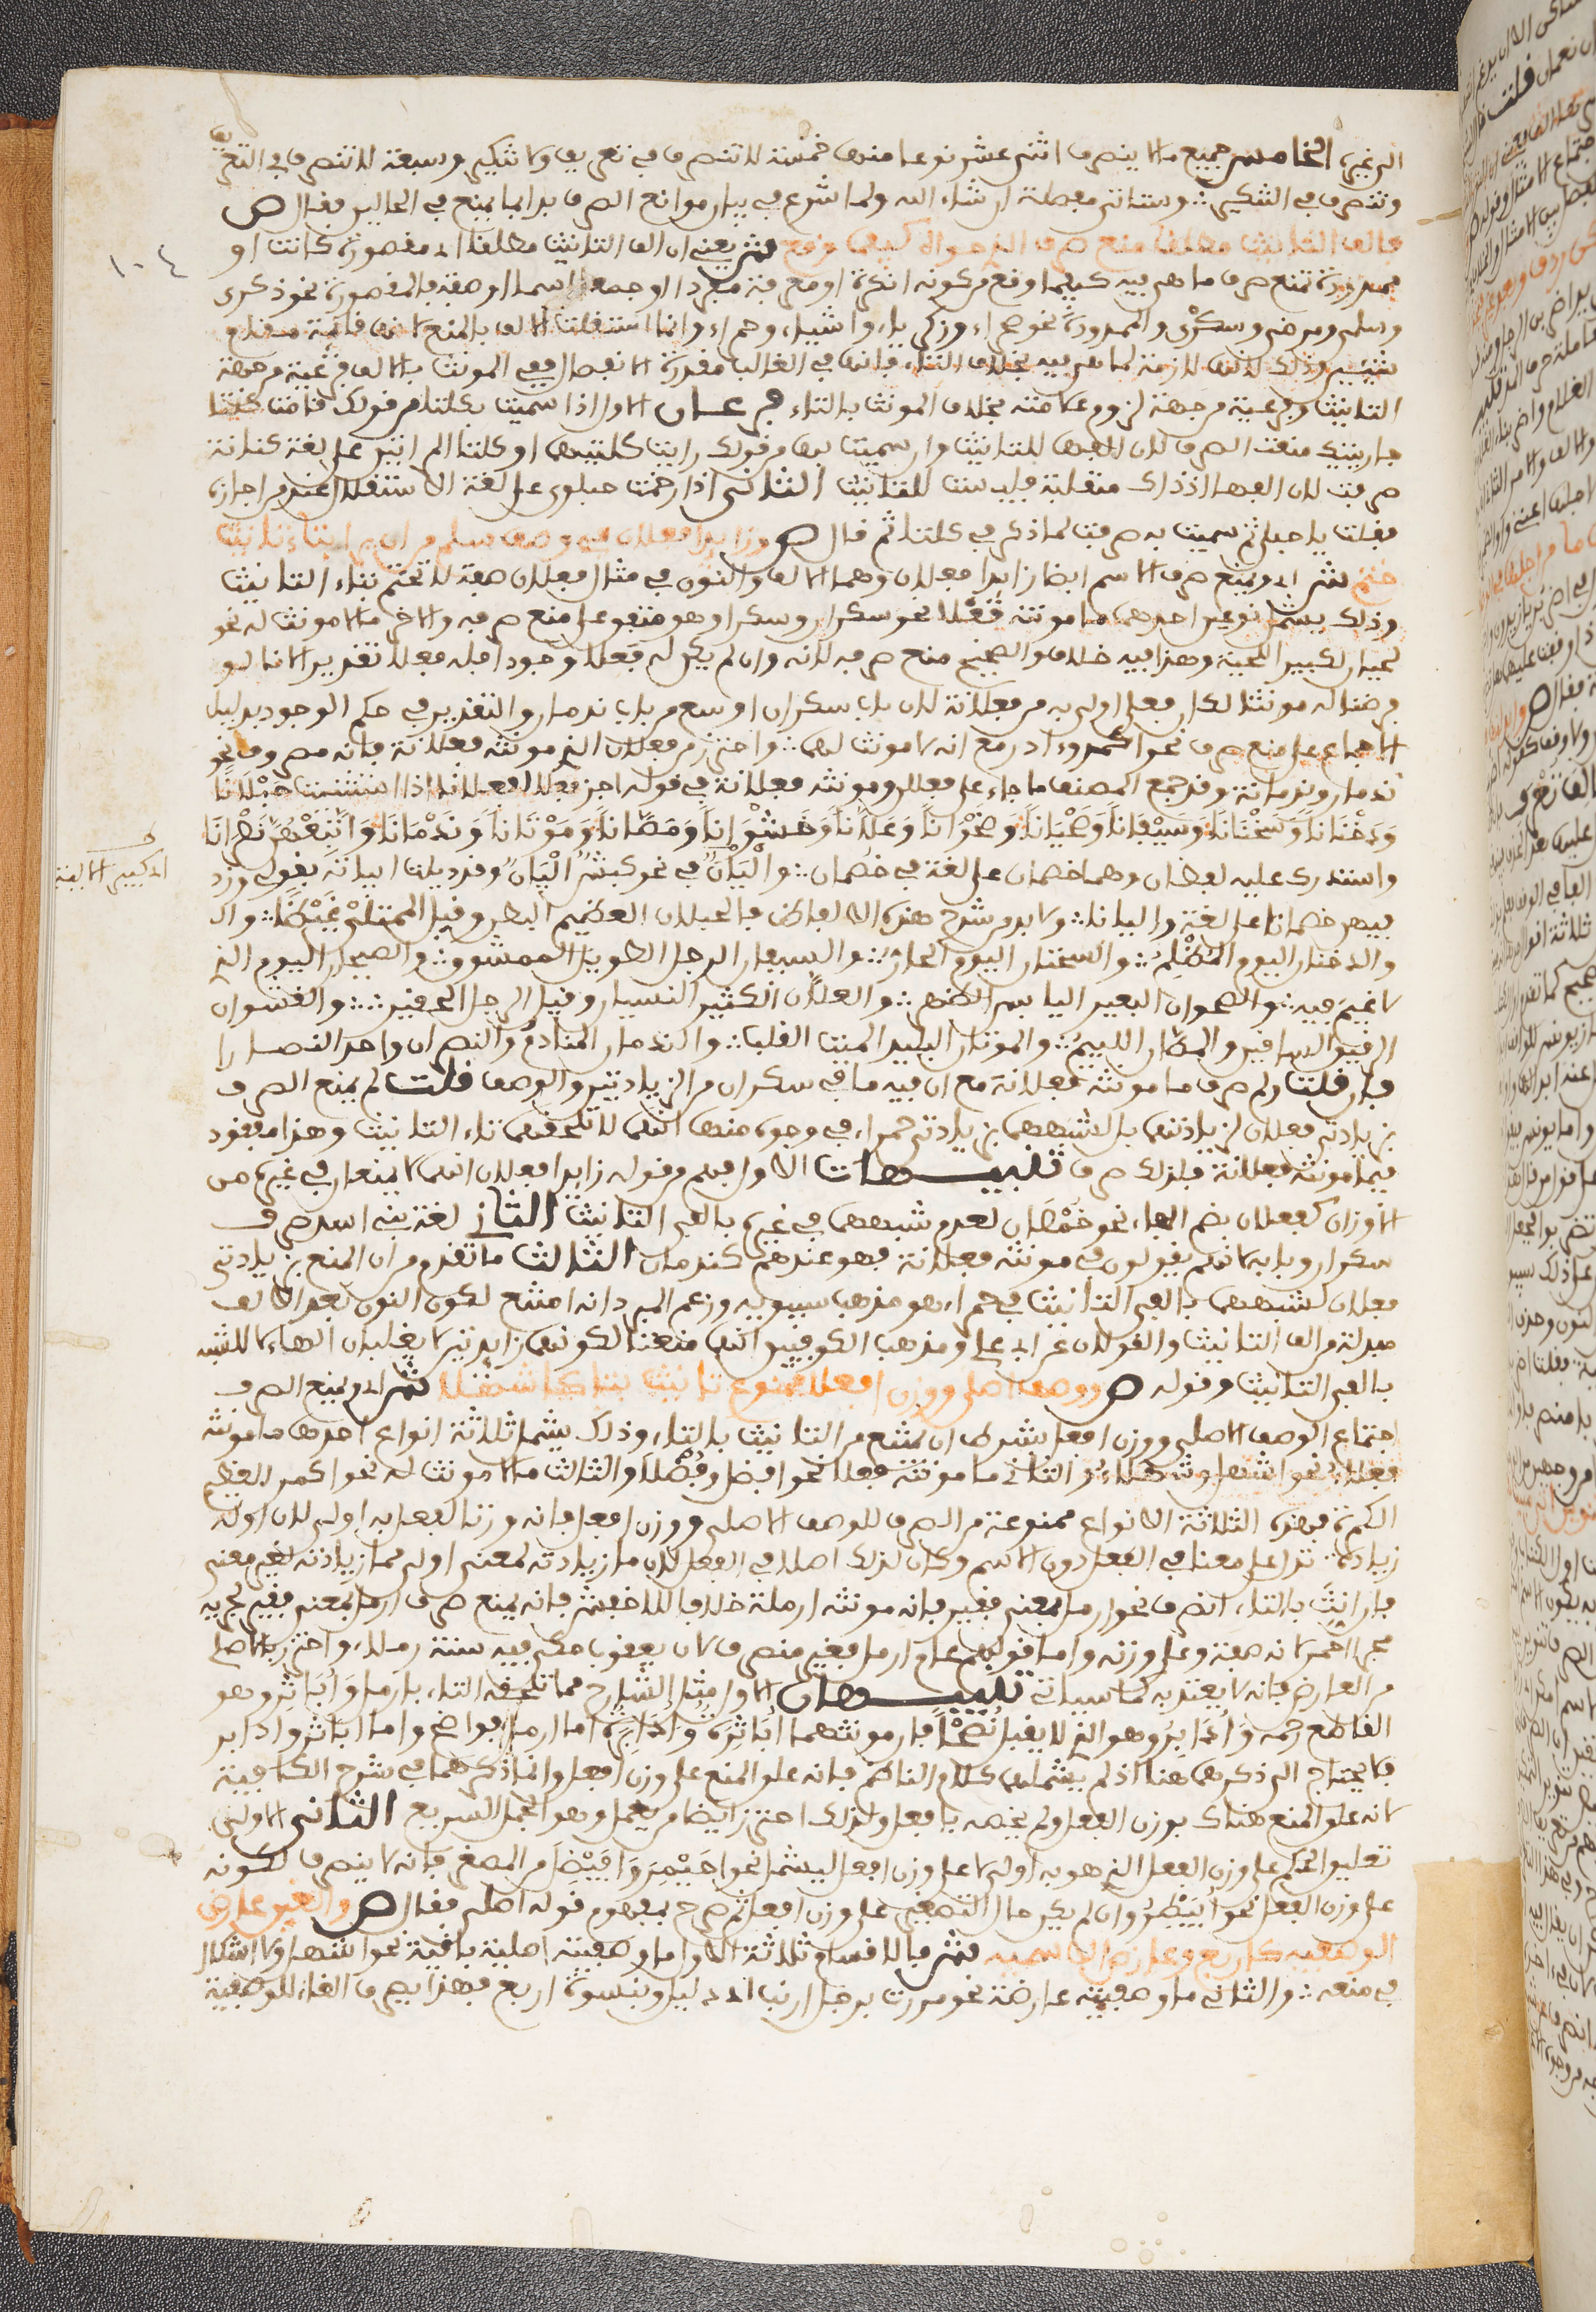 الى غيره الخامس جميع ما لا ينصرف اثنى عشر نوعا منها خمسة لا تنصرف في تعريف ولا تنكير وسبعة لا تنصرف في التعريف
وتنصرف في التنكير وستاتي مفصلة ان شاء الله ولما شرع في بيان موانع الصرف بدا بما يمنع في الحالين فقال ص
فالف التانيث مطلقا منع صرف الذي حواه كيفما وقع ش يعني ان الف التانيث مطلقا اي مقصورة كانت او
ممدودة تمنع صرف ما هي فيه كيفما وقع من كونه نكرة او معرفة مفردا او جمعا اسما او صفة فالمقصورة نحو ذكرى
وسلمى ومرضى وسكرى والممدودة نحو صحراء وزكرياء واشياء وحمراء وانما استقلت الالف بالمنع لانها قائمة مقام
شيئين وذلك لانها لازمة لما هي فيه بخلاف التاء فانها في الغالب مقدرة الانفصال ففي المونث بالالف فرعية من جهة
التانيث وفرعية من جهة لزوم علامته بخلاف المونث بالتاء فرعان الاول اذا سميت بكلتا من قولك قامت كلتا
جاريتيك منعت الصرف لان الفها للتانيث وان سميت بها من قولك رايت كلتيهما او كلتي المراتين على لغة كنانة
صرفت لان الفها اذ ذاك منقلبة فليست للتانيث الثاني اذا رخمت حبلوي على لغة الاستقلال عند من اجازه
فقلت يا حبلى ثم سميت به صرفت لما ذكر في كلتا ثم قال ص وزائدا فعلان في وصف سلم من ان يرى بتاء تانيث
ختم ش اي ويمنع صرف الاسم ايضا زائدا فعلان وهما الالف والنون في مثال فعلان صفة لا تختم بتاء التانيث
وذلك يشمل نوعين احدهما ما مونثه فعلى نحو سكران وسكرى وهو متفق على منع صرفه والاخر ما لا مونث له نحو
لحيان لكبير اللحية وهذا فيه خلاف والصحيح منع صرفه لانه وان لم يكن له فعلى وجودا فله فعلى تقديرا لانا لو
فرضنا له مونثا لكان فعلى اولى به من فعلانة لان باب سكران اوسع من باب ندمان والتقدير في حكم الوجود بدليل
الاجماع على منع صرف نحو اكمر وءادر مع انه لا مونث لهما واحترز من فعلان الذي مونثه فعلانة فانه مصروف نحو
ندمان وندمانة وقد جمع المصنف ما جاء على فعلان ومونثه فعلانة في قوله اجز فعلى لفعلانا اذا استثنيت حبلانا
ودخنانا وسخنانا وسيفانا وصحيانا وصوجانا وعلانا وقشوانا ومصانا وموتانا وندمانا واتبعهن نصرانا
واستدرك عليه لفظان وهما خمصان على لغة في خمصان واليان في نحو كبش اليان وذيل ابياته بقوله وزد
فيهن خمصانا على لغة واليانا ولا بد من شرح هذه الالفاظ فالحبلان العظيم البطن وقيل الممتلئ غيظا
والدخنان اليوم المظلم والسخنان اليوم الحار والسيفان الرجل الطويل الممشوق والصحيان اليوم الذي
لا غيم فيه والصوجان البعير اليابس الظهر والعلان الكثير النسيان وقيل الرجل الحقير والقشوان
الرقيق الساقين والمصان اللئيم والموتان البليد الميت القلب والندمان المنادم والنصران واحد النصارى
فان قلت ولم صرف ما مونثه فعلانة مع ان فيه ما في سكران من الزيادتين والوصف قلت لم يمنع الصرف
بزيادتي فعلان لزيادتهما بل لشبههما بزيادتي حمراء في وجوه منها انهما لا تلحقهما تاء التانيث وهذا مفقود
فيما مونثه فعلانة فلذلك صرف تنبيهات الاول فهم من قوله زائدا فعلان انهما لا يمنعان في غيره من
الاوزان كفعلان بضم الفاء نحو خمصان لعدم شبههما في غيره بالفي التانيث الثاني لغة بني اسد صرف
سكران وبابه لانهم يقولون في مونثه فعلانة فهو عندهم كندمان الثالث ما تقدم من ان المنع بزيادتي
فعلان لشبههما بالفي التانيث في حمراء هو مذهب سيبويه وزعم المبرد انه امتنع لكون النون بعد الالف
مبدلة من الف التانيث والقولان عن ابي علي ومذهب الكوفيين انهما منعتا لكونهما زائدتين لا يقبلان الهاء لا للشبه
بالفي التانيث وقوله ص ووصف اصلي ووزن افعلا ممنوع تانيث بتا كاشهلا ش اي ويمنع الصرف
اجتماع الوصف الاصلي ووزن افعل بشرط ان يمتنع من التانيث بالتاء وذلك يشمل ثلاثة انواع احدها ما مونثه
فعلاء نحو اشهل وشهلاء والثاني ما مونثه فعلى نحو افضل وفضلى والثالث ما لا مونث له نحو اكمر العظيم
الكمرة فهذه الثلاثة الانواع ممنوعة من الصرف للوصف الاصلي ووزن افعل فانه وزن الفعل به اولى لان اوله
زيادة تدل على معنى في الفعل دون الاسم وكان لذلك اصلا في الفعل لان ما زيادته لمعنى اولى مما زيادته لغير معنى
فان انث بالتاء انصرف نحو ارمل بمعنى فقير فانه مونثه ارملة خلافا للاخفش فانه يمنع صرف ارمل بمعنى فقير لجريه
مجرى احمر لانه صفة وعلى وزنه واما قولهم عام ارمل فغير منصرف لان يعقوب حكى فيه سنة رملاء واحترز بالاصلي
من العارض فانه لا يعتد به كما سياتي تنبيهان الاول مثل الشارح لما تلحقه التاء بارمل واباتر وهو
القاطع رحمه وادابر وهو الذي لا يقبل نصحا فان مونثهما اباترة وادابرة اما ارمل فواضح واما اباتر وادابر
فلا يحتاج الى ذكرهما هنا اذ لم يشملهما كلام الناظم فانه علق المنع على وزن افعل وانما ذكرهما في شرح الكافية
لانه علق المنع هناك بوزن الفعل ولم يخصه بافعل ولذلك احترز ايضا من يعمل وهو الجمل السريع الثاني الاولى
تعليق الحكم على وزن الفعل الذي هو به اولى لا على وزن افعل ليشمل نحو احيمر وافيضل من المصغر فانه لا ينصرف لكونه
على وزن الفعل نحو ابيطر وان لم يكن حال التصغير على وزن افعل ثم صرح بمفهوم قوله اصلي فقال ص والغين عارض
الوصفيه كاربع وعارض الاسميه ش فالاقسام ثلاثة الاول ما وصفيته اصلية باقية نحو اشهل ولا اشكال
في منعه والثاني ما وصفيته عارضة نحو مررت برجل ارنب اي ذليل وبنسوة اربع فهذا يصرف الغاء للوصفية
١٠٤
اي كبير الالية